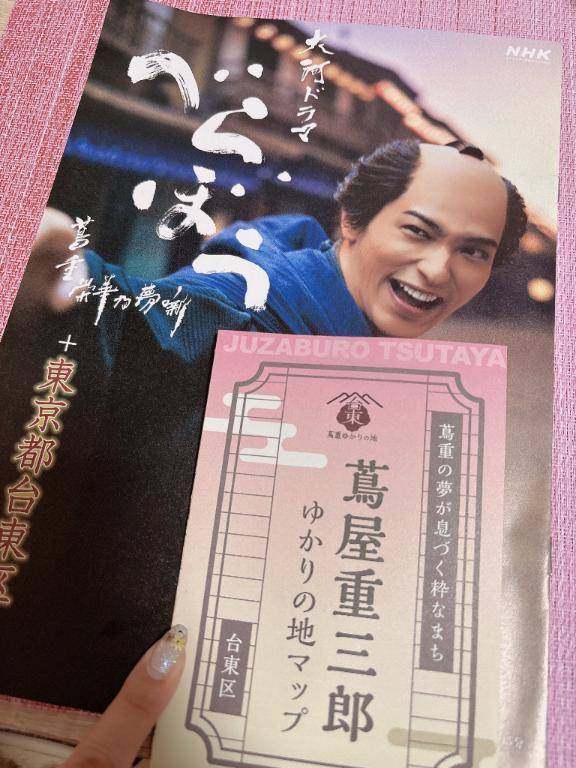 NHK
大河ドラマ
べらぼう
蔦重栄華乃夢噺
+
東京都台東区
JUZABURO TSUTAYA
台東
蔦重ゆかりの地
蔦重の夢が息づく粋なまち
蔦屋重三郎
ゆかりの地マップ
台東区